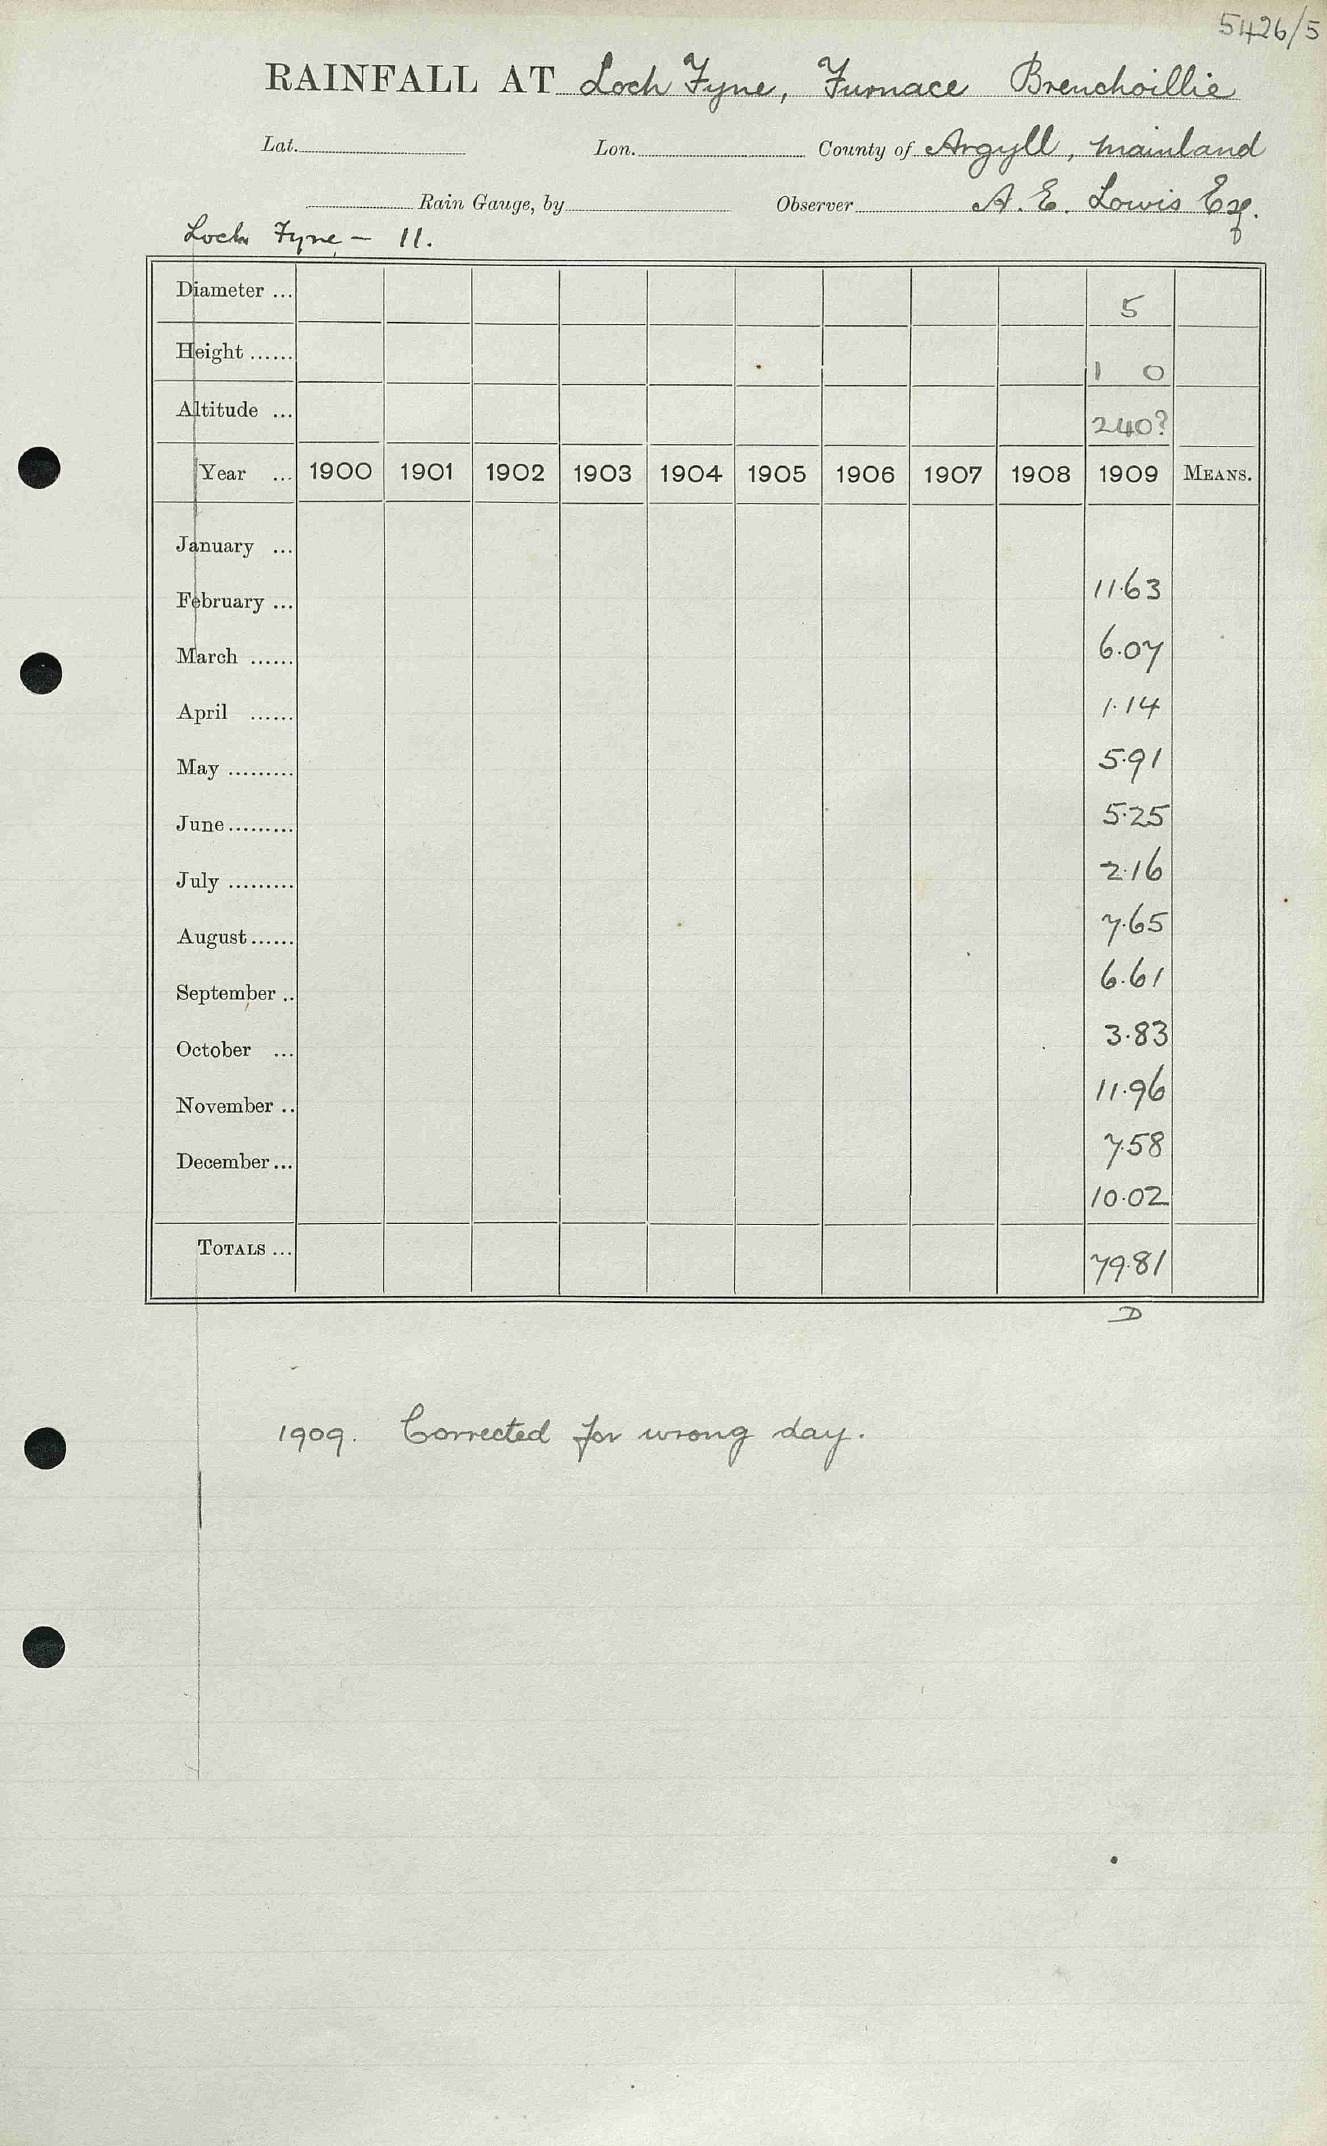 5426/5
RAINFALL AT Loch Fyne, Furnace Brenchoillie
Lat. Lon. County of Argyll, Mainland
Rain Gauge, by Observer A. E. Lowis Esq.
Loch Fyne – 11.
Diameter ... 5
Height ...... 1 0
Altitude ... 240?
Year ... 1900 1901 1902 1903 1904 1905 1906 1907 1908 1909 MEANS.
January ...
11.63
February ...
6.07
March ......
1.14
April ......
5.91
May .........
5.25
June.........
2.16
July .........
7.65
August......
6.61
September ..
3.83
October ...
11.96
November ..
7.58
December...
10.02
TOTALS ... 79.81
D
1909. Corrected for wrong day.